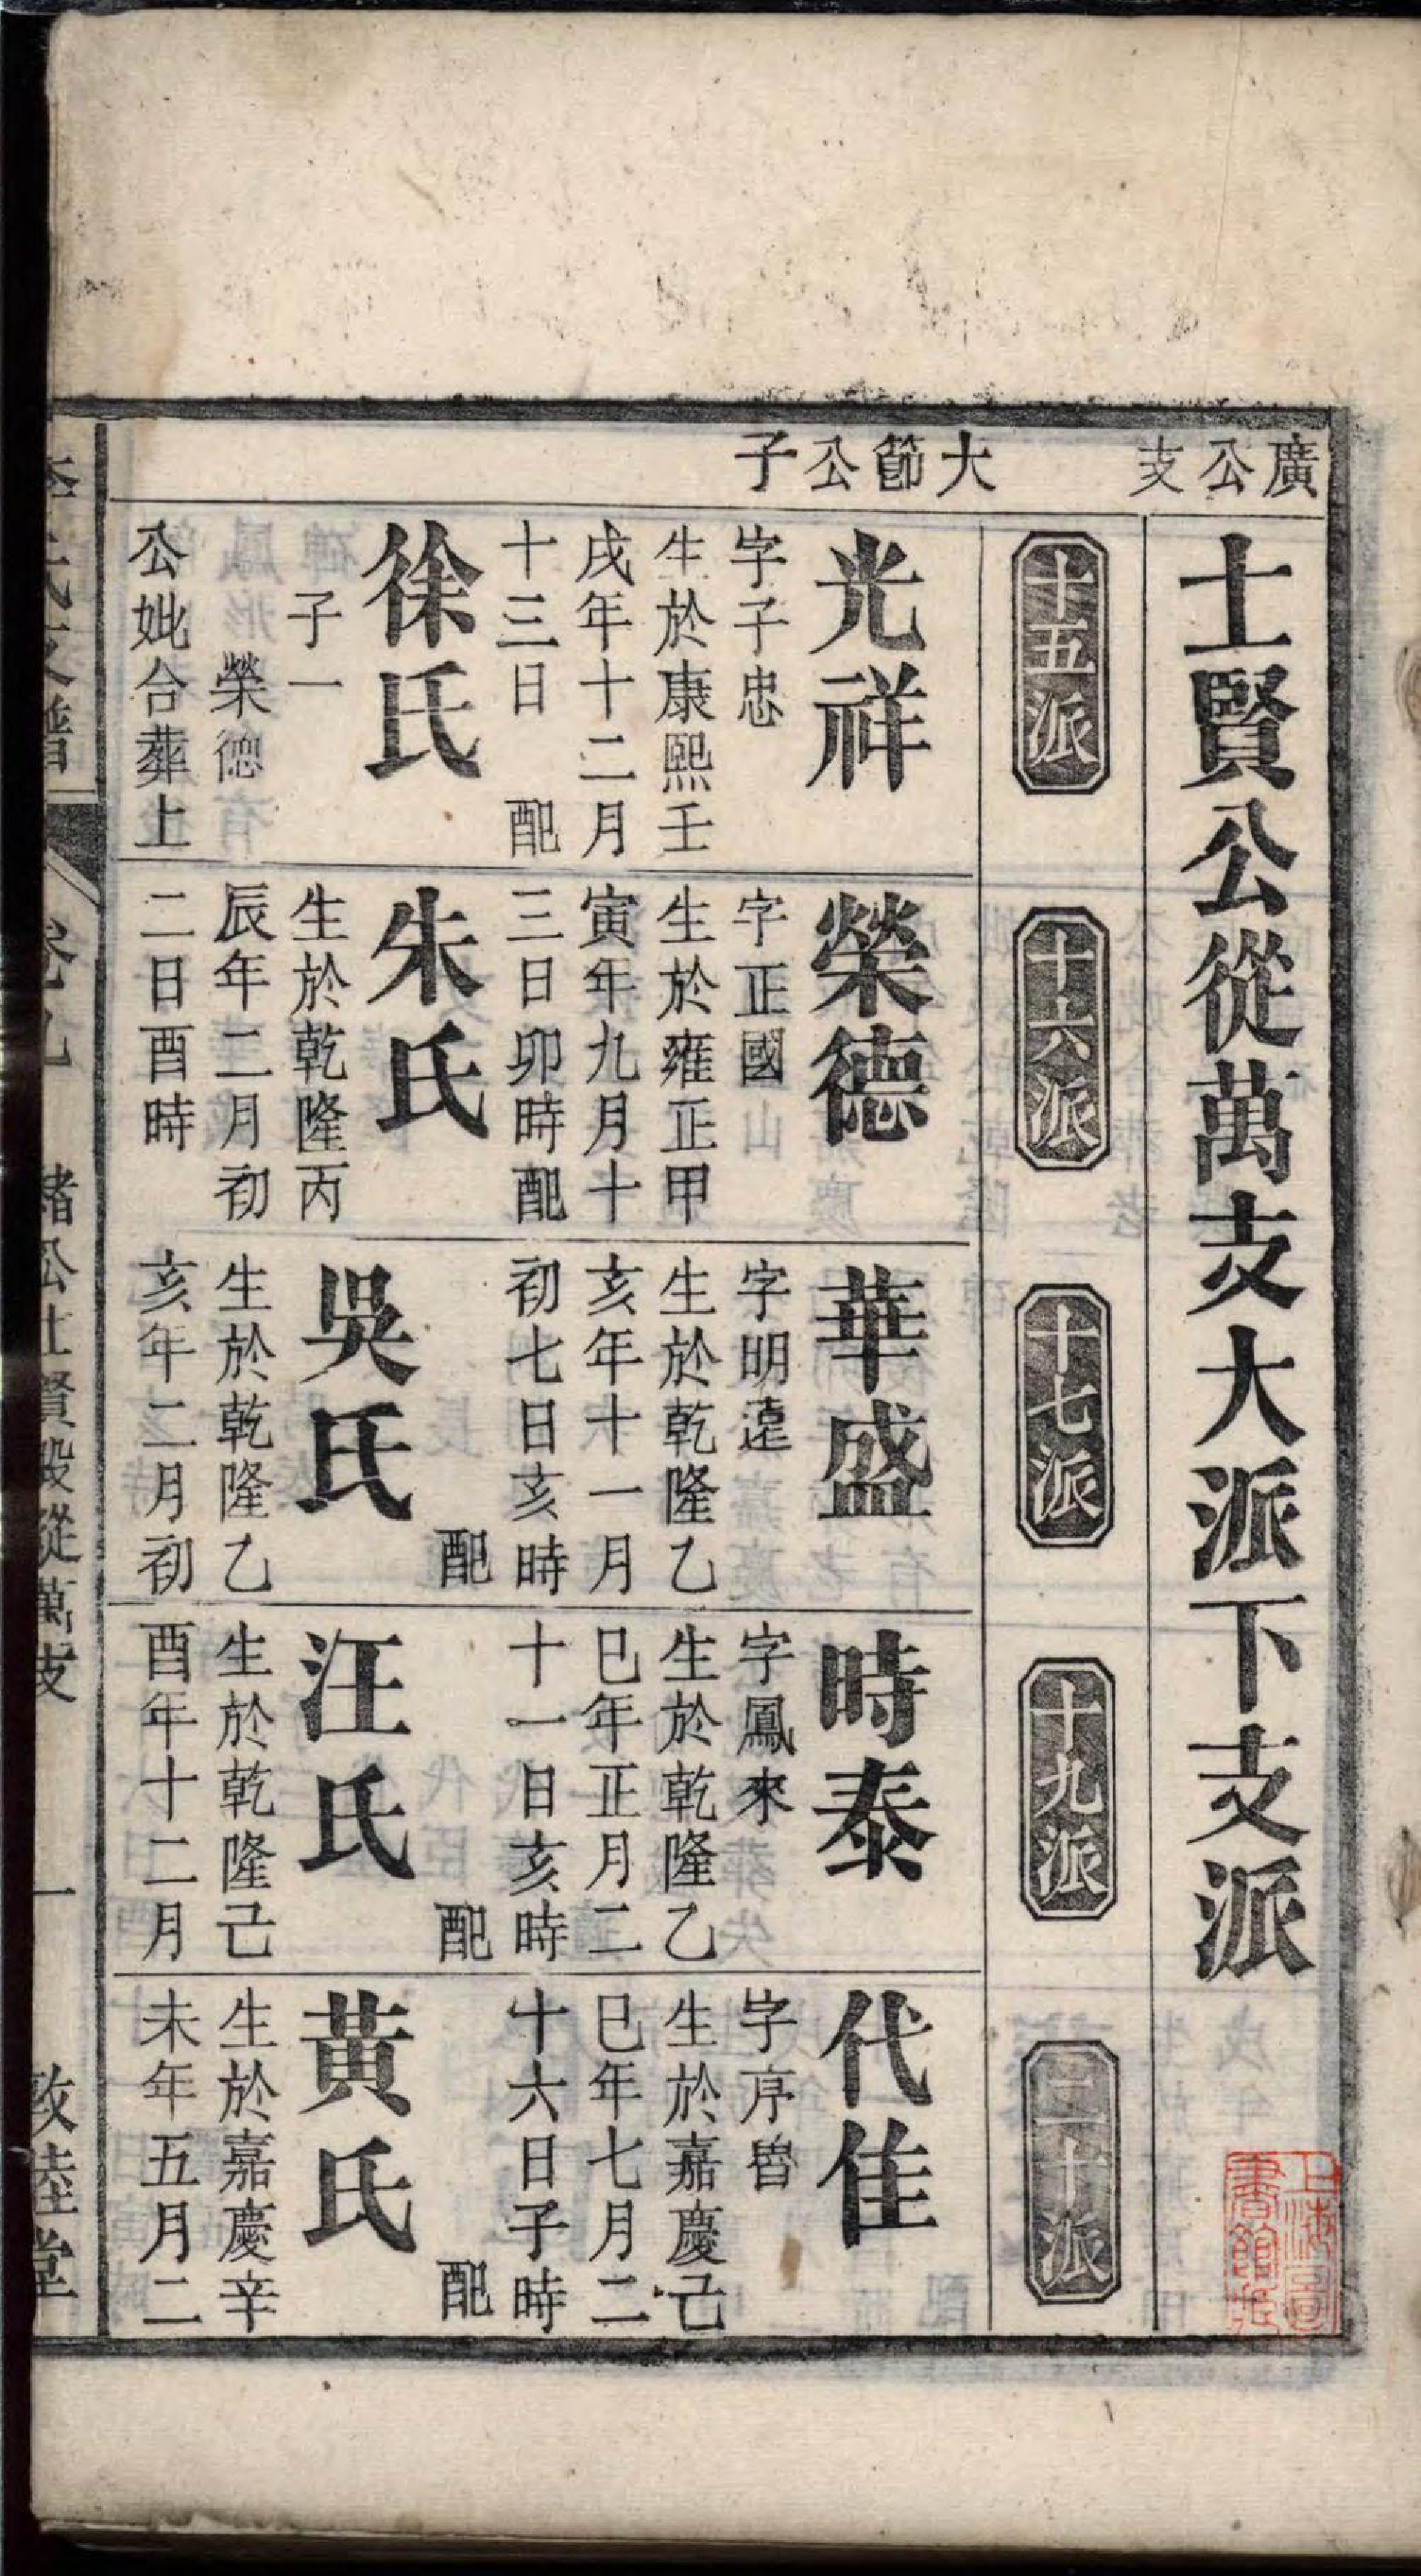 廣公支
大節公子
士賢公從萬支大派下支派
十五派
十六派
十七派
十九派
二十派
光祥
字子忠
生於康熙壬
戌年十二月
十三日 配
徐氏
子一
榮德
公妣合葬上
榮德
字正國
生於雍正甲
寅年九月十
三日卯時配
朱氏
生於乾隆丙
辰年二月初
二日酉時
華盛
字明遠
生於乾隆乙
亥年十一月
初七日亥時
配
吳氏
生於乾隆乙
亥年二月初
時泰
字鳳來
生於乾隆乙
巳年正月二
十一日亥時
配
汪氏
生於乾隆己
酉年十二月
代隹
字序魯
生於嘉慶己
巳年七月二
十六日子時
配
黃氏
生於嘉慶辛
未年五月二
緒公士賢毀從萬支
一
敦睦堂